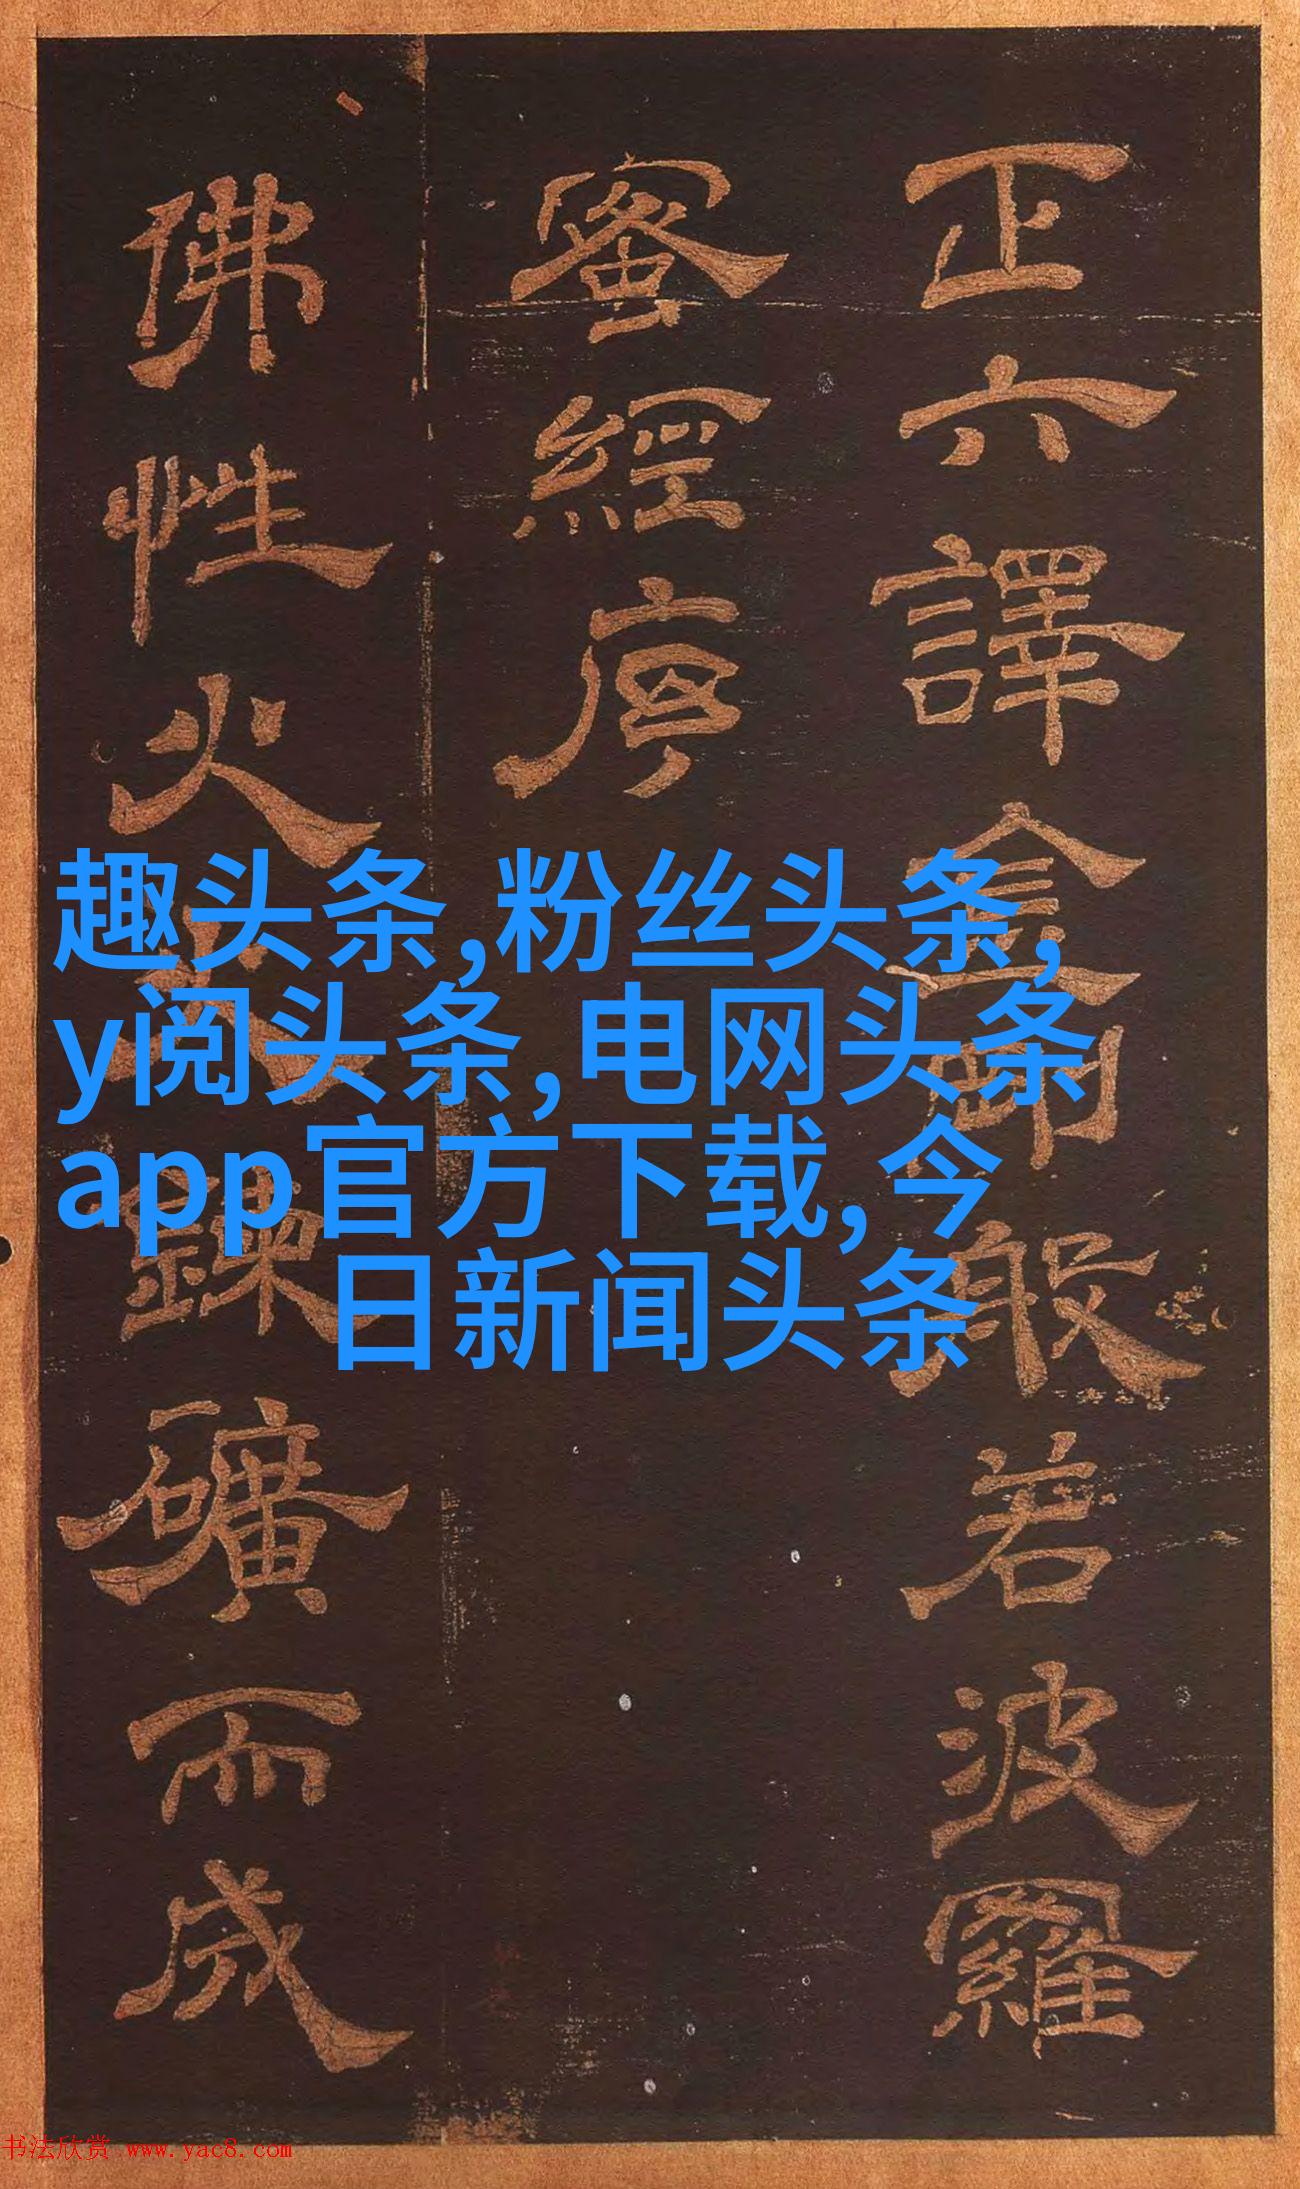 正六譯金剛般若波羅
蜜經序
佛性火大鍊礦而成
趣头条,粉丝头条,
y阅头条,电网头条
app官方下载,今
日新闻头条
书法欣赏 www.yac8.com